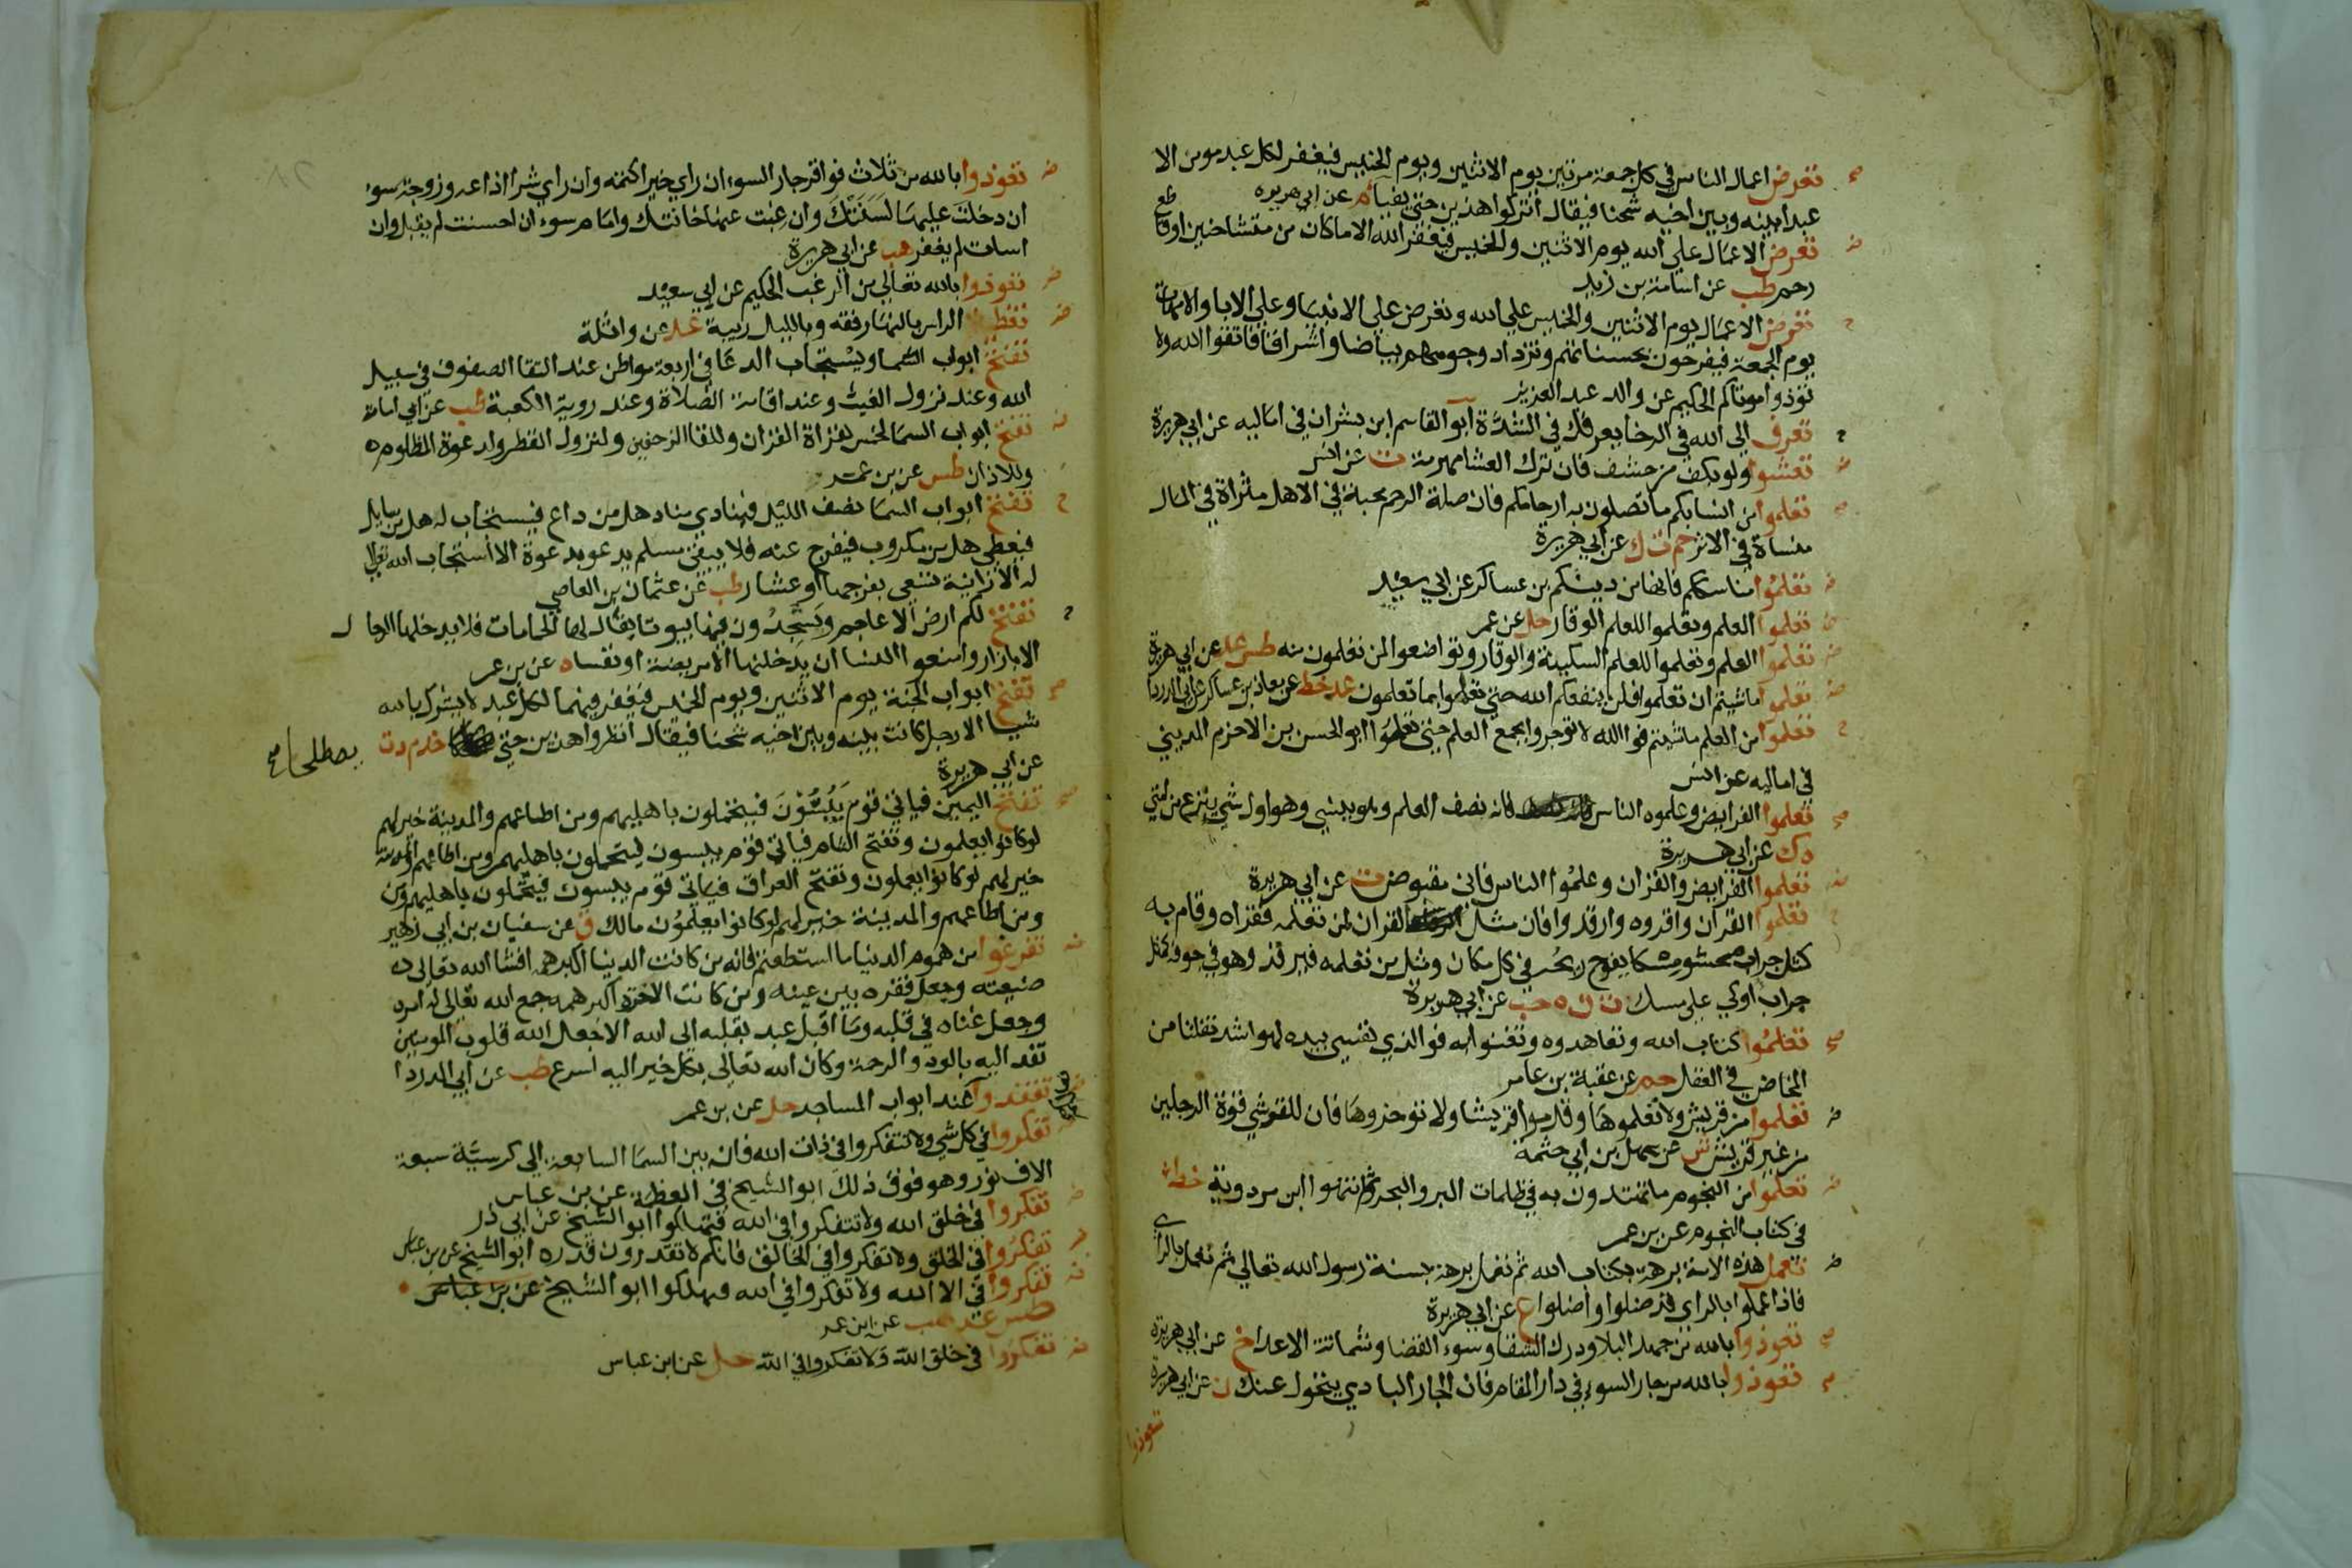 تعرض اعمال الناس في كل جمعة مرتين يوم الاثنين ويوم الخميس فيغفر لكل عبد مومن الا
عبدا بينه وبين اخيه شحنا فيقال اتركوا هذين حتى يفيا م عن ابي هريره
تعرض الاعمال على الله يوم الاثنين والخميس فيغفر الله الا ما كان من متشاحنين او قاطع
رحم طب عن اسامة بن زيد
تعرض الاعمال يوم الاثنين والخميس على الله وتعرض على الانبيا وعلى الابا والامهات
يوم الجمعة فيفرحون بحسناتهم وتزداد وجوههم بياضا واشراقا فاتقوا الله ولا
توذوا موتاكم الحكيم عن والد عبد العزيز
تعرف الى الله في الرخا يعرفك في الشدة ابو القاسم ابن بشران في اماليه عن ابي هريرة
تعشوا ولو بكف من حشف فان ترك العشا مهرمة ت عن انس
تعلموا من انسابكم ما تصلون به ارحامكم فان صلة الرحم محبة في الاهل مثراة في المال
منساة في الاثر حم ت ك عن ابي هريرة
تعلموا مناسككم فانها من دينكم بن عساكر عن ابي سعيد
تعلموا العلم وتعلموا للعلم الوقار حل عن عمر
تعلموا العلم وتعلموا للعلم السكينة والوقار وتواضعوا لمن تعلمون منه طس عد عن ابي هريرة
تعلموا ما شيتم ان تعلموا فلن ينفعكم الله حتى تعملوا بما تعلمون عد خط عن معاذ بن عساكر عن ابي الدردا
تعلموا من العلم ما شيتم فوالله لا توجروا بجمع العلم حتى تعملوا ابو الحسن بن الاخرم المديني
في اماليه عن انس
تعلموا الفرايض وعلموه الناس فانه نصف العلم وهو ينسى وهو اول شي ينزع من امتي
ه ك عن ابي هريرة
تعلموا الفرايض والقران وعلموا الناس فاني مقبوض ت عن ابي هريرة
تعلموا القران واقروه وارقدوا فان مثل القران لمن تعلمه فقراه وقام به
كمثل جراب محشو مسكا يفوح ريحه في كل مكان ومثل من تعلمه فيرقد وهو في جوفه كمثل
جراب اوكي على مسك ت ن ه حب عن ابي هريرة
تعلموا كتاب الله وتعاهدوه وتغنوا به فوالذي نفسي بيده لهو اشد تفلتا من
المخاض في العقل حم عن عقبة بن عامر
تعلموا من قريش ولا تعلموها وقدموا قريشا ولا توخروها فان للقرشي قوة الرجلين
من غير قريش ش عن سهل بن ابي حثمة
تعلموا من النجوم ما تهتدون به في ظلمات البر والبحر ثم انتهوا ابن مردوية خط
في كتاب النجوم عن بن عمر
تعمل هذه الامة برهة بكتاب الله ثم تعمل برهة بسنة رسول الله تعالى ثم تعمل بالراي
فاذا عملوا بالراي فقد ضلوا واضلوا ع عن ابي هريرة
تعوذوا بالله من جهد البلا ودرك الشقا وسوء القضا وشماتة الاعدا خ عن ابي هريره
تعوذوا بالله من جار السوء في دار المقام فان الجار البادي يتحول عنك ن عن ابي هريرة
تعوذوا
تعوذوا بالله من ثلاث فواقر جار السوء ان راي خيرا كتمه وان راي شرا اذاعه وزوجة سوء
ان دخلت عليها لسنتك وان غبت عنها خانتك وامام سوء ان احسنت لم يقبل وان
اسات لم يغفر هب عن ابي هريرة
تعوذوا بالله تعالى من الرغب الحكيم عن ابي سعيد
تغطية الراس بالنهار فقه وبالليل ريبة عد عن واثلة
تفتح ابواب السما ويستجاب الدعا في اربعة مواطن عند التقا الصفوف في سبيل
الله وعند نزول الغيث وعند اقامة الصلاة وعند روية الكعبة طب عن ابي امامة
تفتح ابواب السما لخمس لقراة القران وللقا الزحفين ولنزول القطر ولدعوة المظلوم
وللاذان طس عن بن عمر
تفتح ابواب السما نصف الليل فينادي مناد هل من داع فيستجاب له هل من سايل
فيعطي هل من مكروب فيفرج عنه فلا يبقى مسلم يدعو بدعوة الا استجاب الله تعالى
له الا زانية تسعى بفرجها او عشار طب عن عثمان بن العاصي
تفتح لكم ارض الاعاجم وستجدون فيها بيوتا يقال لها الحمامات فلا يدخلها الرجال
الا بازار وامنعوا النسا ان يدخلنها الا مريضة او نفسا ه عن بن عمر
تفتح ابواب الجنة يوم الاثنين ويوم الخميس فيغفر فيهما لكل عبد لا يشرك بالله
شيا الا رجل كانت بينه وبين اخيه شحنا فيقال انظروا هذين حتى خد م د ت يصطلحا صح
عن ابي هريرة
تفتح اليمن فياتي قوم يبسون فيتحملون باهليهم ومن اطاعهم والمدينة خير لهم
لو كانوا يعلمون وتفتح الشام فياتي قوم يبسون فيتحملون باهليهم ومن اطاعهم والمدينة
خير لهم لو كانوا يعلمون وتفتح العراق فياتي قوم يبسون فيتحملون باهليهم ومن
ومن اطاعهم والمدينة خير لهم لو كانوا يعلمون مالك ق عن سفيان بن ابي زهير
تفرغوا من هموم الدنيا ما استطعتم فانه من كانت الدنيا اكبر همه افشا الله تعالى
ضيعته وجعل فقره بين عينه ومن كانت الاخرة اكبر همه جمع الله تعالى له امره
وجعل غناه في قلبه وما اقبل عبد بقلبه الى الله الا جعل الله قلوب المومنين
تفد اليه بالود والرحمة وكان الله تعالى بكل خير اليه اسرع طب عن ابي الدردا
تفقدوا عند ابواب المساجد حل عن بن عمر
تفكروا في كل شي ولا تتفكروا في ذات الله فان بين السما السابعة الى كرسيه سبعة
الاف نور وهو فوق ذلك ابو الشيخ في العظمة عن بن عباس
تفكروا في خلق الله ولا تتفكروا في الله فتهلكوا ابو الشيخ عن ابي ذر
تفكروا في الخلق ولا تفكروا في الخالق فانكم لا تقدرون قدره ابو الشيخ عن بن عباس
تفكروا في الا الله ولا تفكروا في الله فتهلكوا ابو الشيخ عن بن عباس
طس عد هب عن ابن عمر
تفكروا في خلق الله ولا تفكروا في الله حل عن ابن عباس